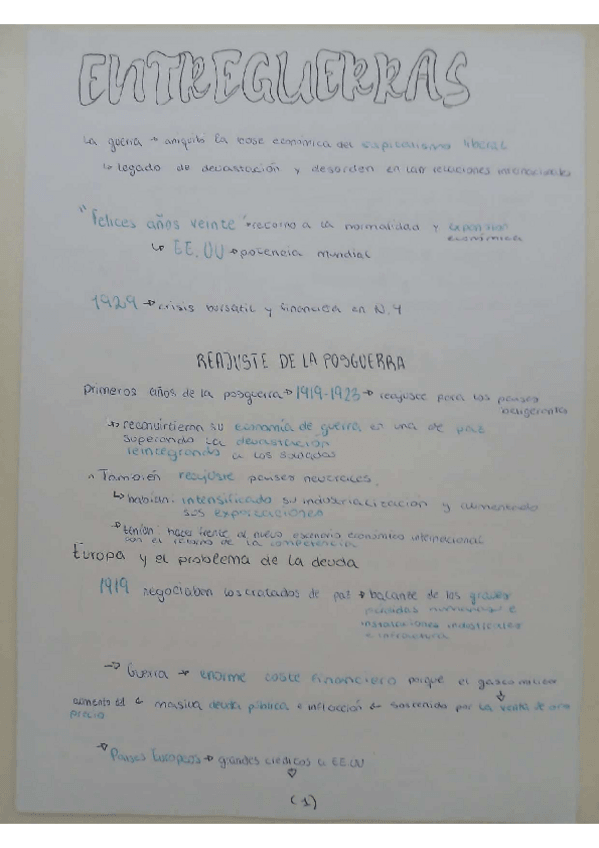 ENTREGUERRAS
La guerra → aniquiló la base económica del capitalismo liberal
↳ legado de devastación y desorden en las relaciones internacionales
"Felices años veinte" → retorno a la normalidad y expansión
económica
↳ EE.UU → potencia mundial
1929 → crisis bursátil y financiera en N.Y
REAJUSTE DE LA POSGUERRA
Primeros años de la posguerra → 1919-1923 → reajuste para los países
beligerantes
→ reconvirtieron su economía de guerra en una de paz
superando la devastación
reintegrando a los soldados
También reajuste países neutrales.
↳ habían: intensificado su industrialización y aumentado
sus exportaciones
→ tenían: hacer frente al nuevo escenario económico internacional
por el retorno de la competencia
Europa y el problema de la deuda
1919 negociaban los tratados de paz → balance de las graves
pérdidas humanas e
instalaciones industriales
e infraestructura
→ Guerra → enorme coste financiero porque el gasto militar
aumento del ← masiva deuda pública e inflacción ← sostenido por la venta de oro
precio
→ Países Europeos → grandes créditos a EE.UU
(1)